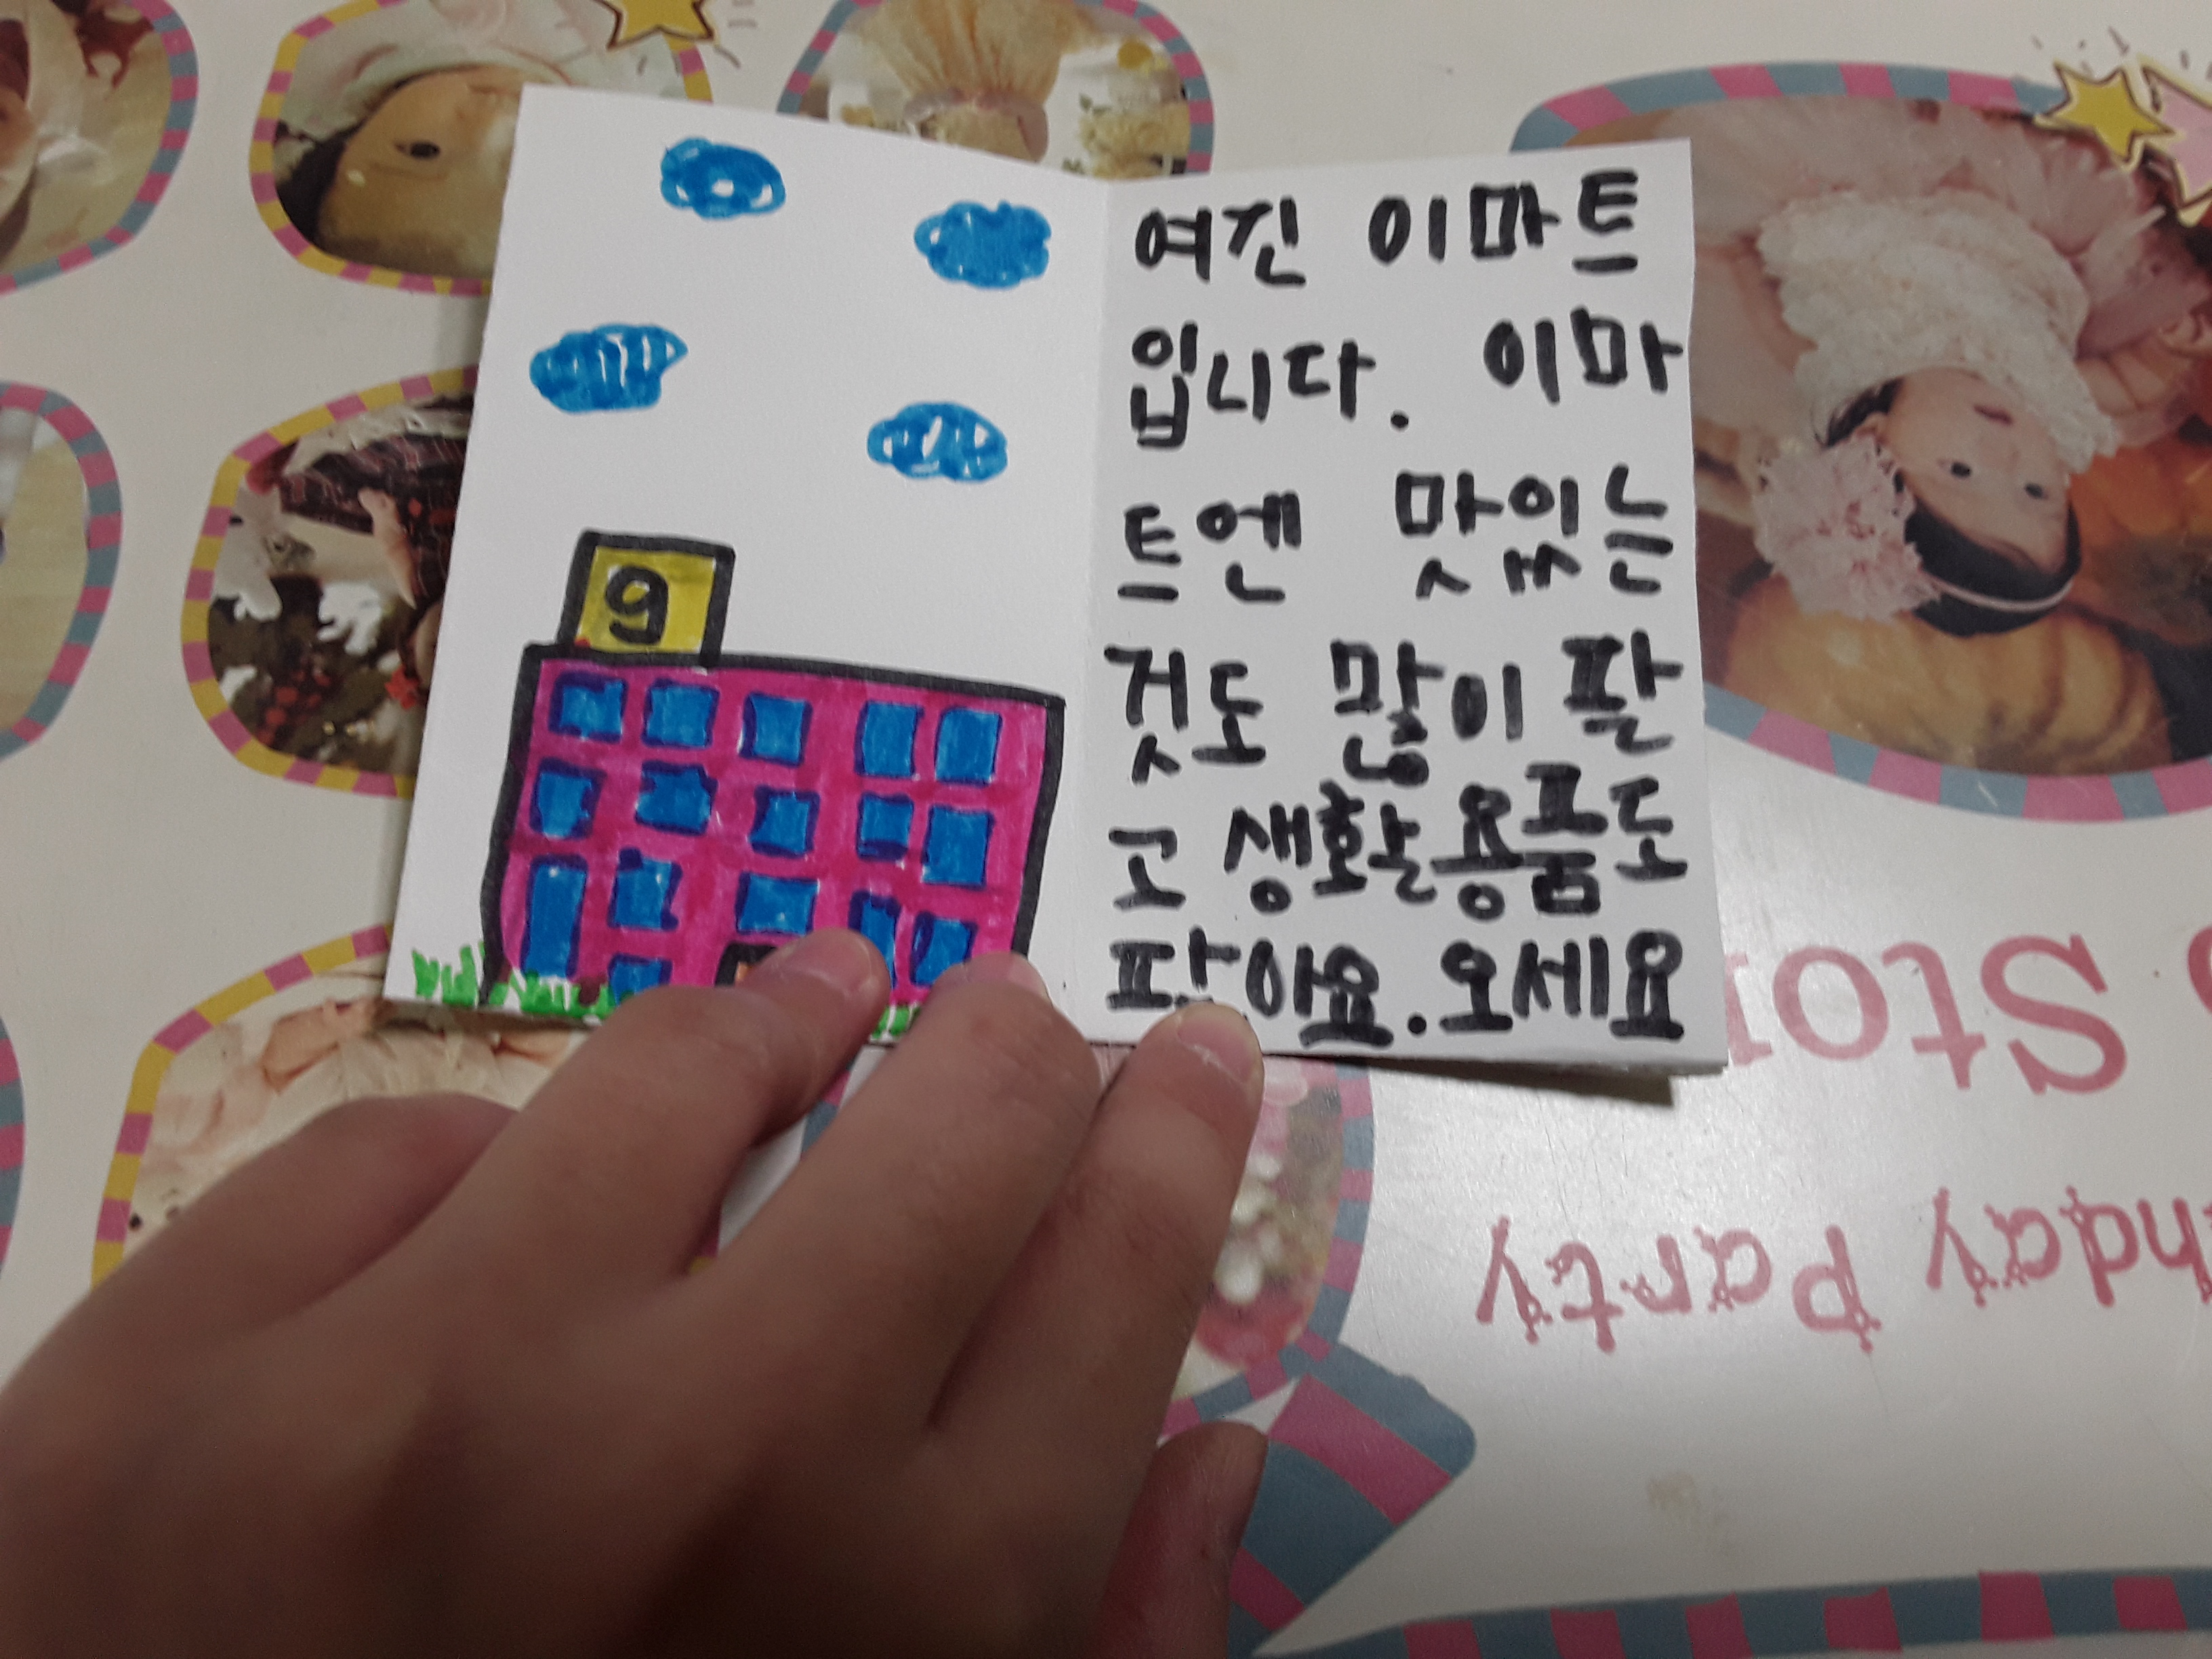 9
여진 이마트
입니다. 이마
트엔 맛있는
것도 많이 팔
고 생활용품도
팔아요. 오세요
Stor
hday Party